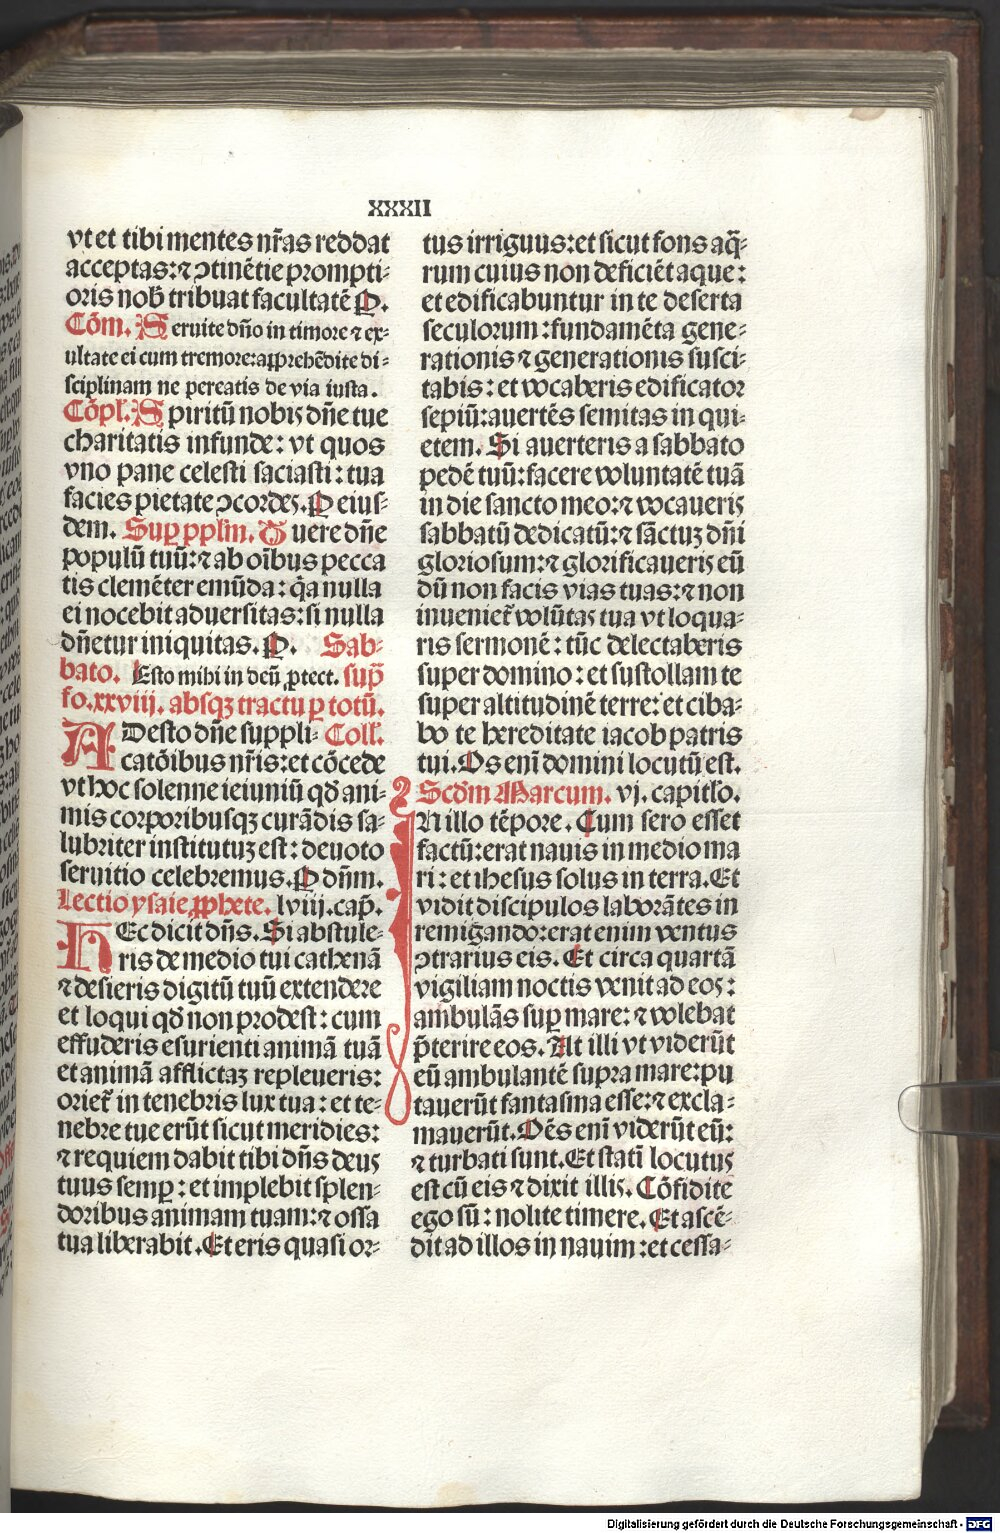 XXXII
vt et tibi mentes nr̃as reddat
acceptas: ⁊ ↄtinẽtie prompti⸗
oris nob̃ tribuat facultatẽ P.
Cõm. Seruite dño in timore ⁊ ex⸗
ultate ei cum tremore: apprehẽdite di⸗
sciplinam ne pereatis de via iusta.
Cõpl̃. Spiritũ nobis dñe tue
charitatis infunde: vt quos
vno pane celesti saciasti: tua
facies pietate ↄcordeʒ. P eius⸗
dem. Suꝑ pplm̃. Tuere dñe
populũ tuũ: ⁊ ab oĩbus pecca
tis clemẽter emũda: q̃a nulla
ei nocebit aduersitas: si nulla
dñetur iniquitas. P. Sab⸗
bato. Esto mihi in deũ ꝓtect. sup̃
fo. xxviij. absqʒ tractu ꝑ totũ.
ADesto dñe suppli⸗ Coll̃.
catõibus nr̃is: et cõcede
vt hoc solenne ieiuniũ qd̃ ani⸗
mis corporibusqʒ curãdis sa⸗
lubriter institutuʒ est: deuoto
seruitio celebremus. P dñm.
Lectio ysaie ꝓphete. lviij. cap̃.
HEc dicit dñs. Si abstule⸗
ris de medio tui cathenã
⁊ desieris digitũ tuũ extendere
et loqui qd̃ non prodest: cum
effuderis esurienti animã tuã
et animã afflictaʒ repleueris:
oriet̃ in tenebris lux tua: et te⸗
nebre tue erũt sicut meridies:
⁊ requiem dabit tibi dñs deus
tuus semꝑ: et implebit splen⸗
doribus animam tuam: ⁊ ossa
tua liberabit. Et eris quasi or⸗
tus irriguus: et sicut fons aq̃⸗
rum cuius non deficiẽt aque:
et edificabuntur in te deserta
seculorum: fundamẽta gene⸗
rationis ⁊ generationis susci⸗
tabis: et vocaberis edificator
sepiũ: auertẽs semitas in qui⸗
etem. Si auerteris a sabbato
pedẽ tuũ: facere voluntatẽ tuã
in die sancto meo: ⁊ vocaueris
sabbatũ dedicatũ: ⁊ sãctuʒ dñi
gloriosum: ⁊ glorificaueris eũ
dũ non facis vias tuas: ⁊ non
inueniet̃ volũtas tua vt loqua⸗
ris sermonẽ: tũc delectaberis
super domino: et sustollam te
super altitudinẽ terre: et ciba⸗
bo te hereditate iacob patris
tui. Os enĩ domini locutũ est.
Scd̃m Marcum. vj. capitl̃o.
IN illo tẽpore. Cum sero esset
factũ: erat nauis in medio ma
ri: et ihesus solus in terra. Et
vidit discipulos laborãtes in
remigando: erat enim ventus
ↄtrarius eis. Et circa quartã
vigiliam noctis venit ad eos:
ambulãs suꝑ mare: ⁊ volebat
p̃terire eos. At illi vt viderũt
eũ ambulantẽ supra mare: pu
tauerũt fantasma esse: ⁊ excla⸗
mauerũt. Oẽs enĩ viderũt eũ:
⁊ turbati sunt. Et statĩ locutus
est cũ eis ⁊ dixit illis. Cõfidite
ego sũ: nolite timere. Et ascẽ⸗
dit ad illos in nauim: et cessa⸗
Digitalisierung gefördert durch die Deutsche Forschungsgemeinschaft - DFG